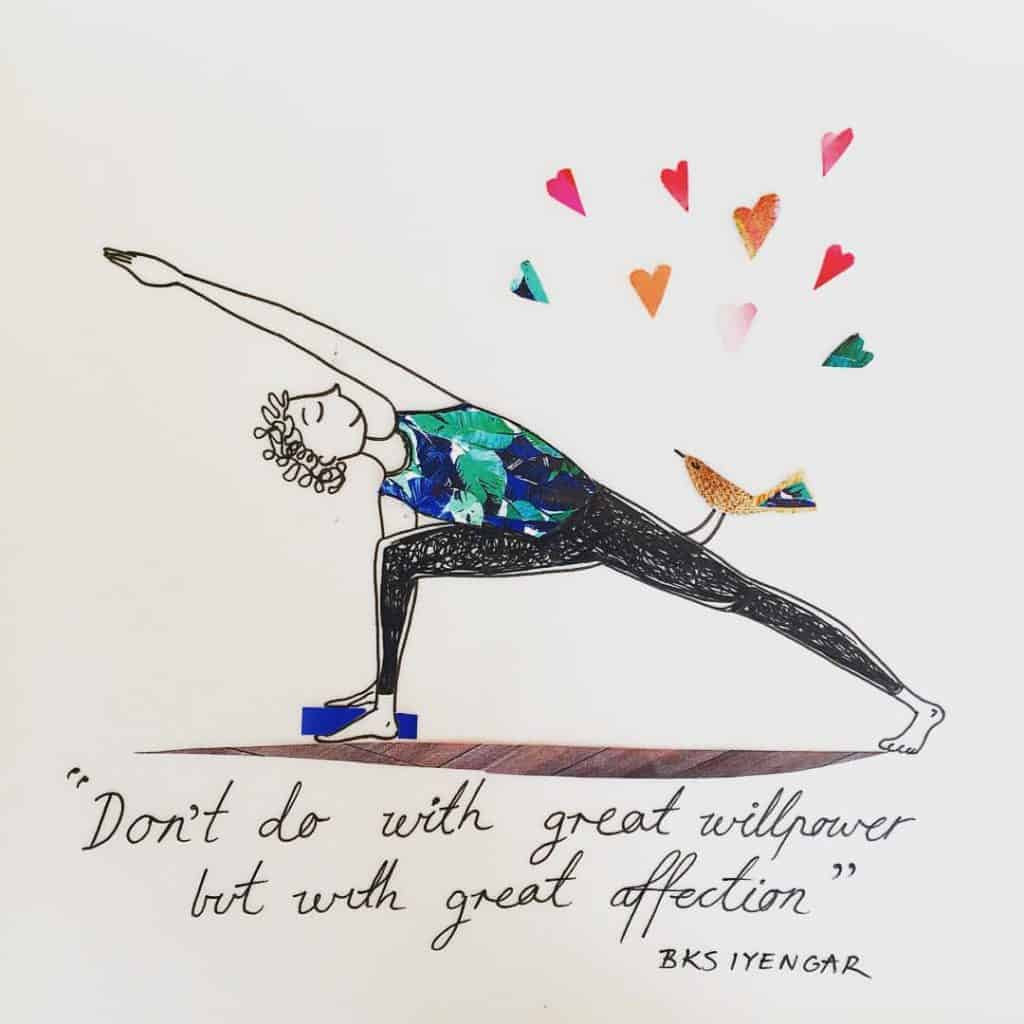 "Don't do with great willpower
but with great affection"
BKS IYENGAR